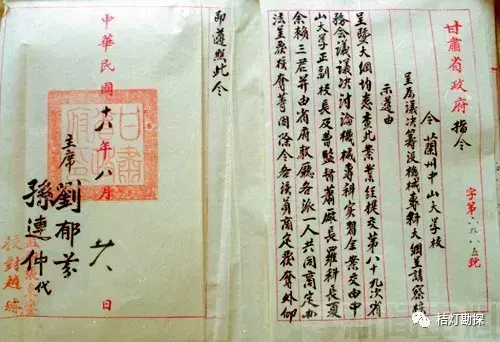 甘肅省政府指令
字第八五號
令蘭州中山大學校
呈為議決籌設機械專科大綱呈請察核
示遵由
呈暨大綱均悉查此案業經提交第八十九次省
務會議議決討論機械專科實習全案交由中
山大學正副校長及曹監督蕭廠長羅科長夏
余賴三君并由省府教廳各派一人共同商定辦
法呈核奪等因除令各該員商定外仰
即遵照此令
中華民國十八年八月日
主席劉郁芬
孫連仲代
校對趙
桔灯勘探